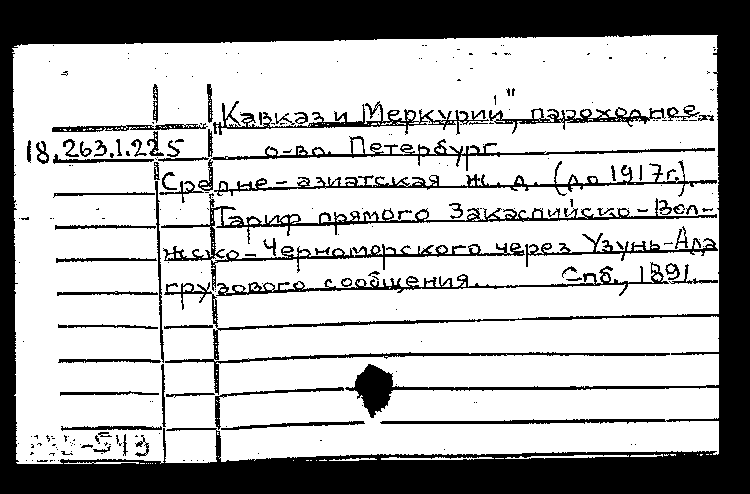 „Кавказ и Меркурий", пароходное
18.263.1.225 о-во. Петербург.
Средне-азиатская ж. д. (до 1917г.).
Тариф прямого Закаспийско-Вол-
жско-Черноморского через Узунь-Ада
грузового сообщения. Спб., 1891.
-543